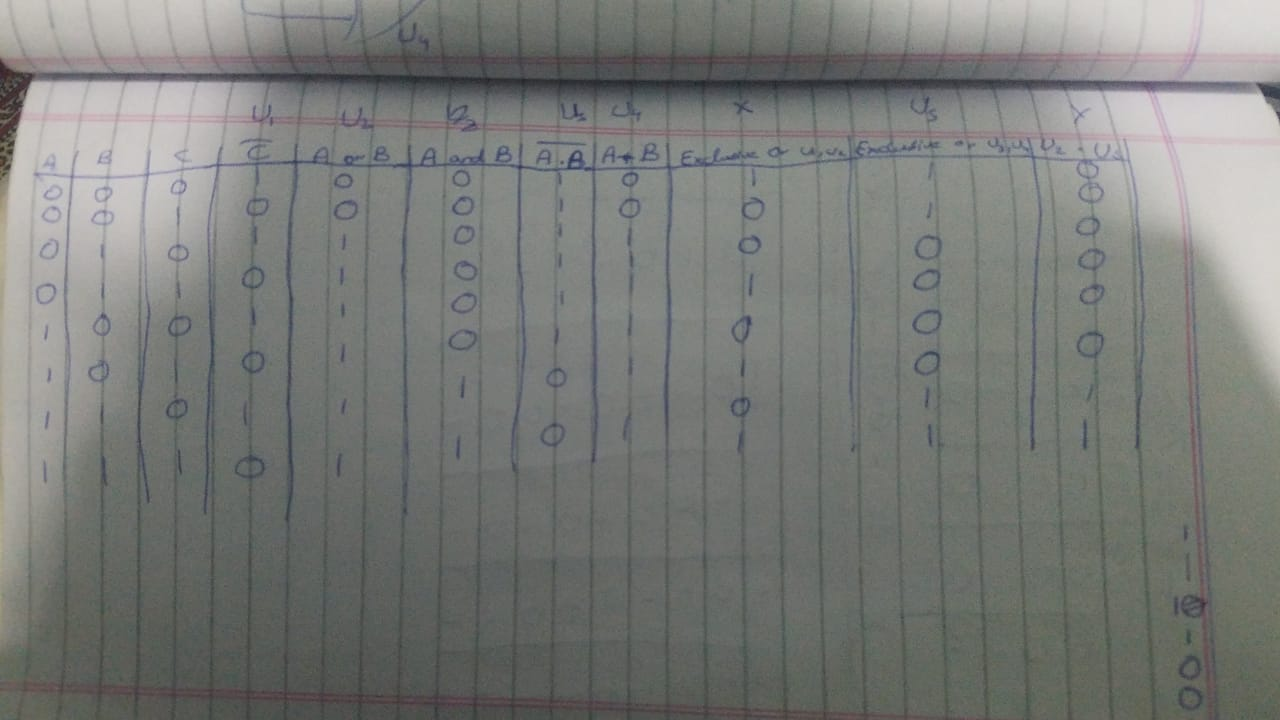 U4
U1 U2 U3 U4 X U5 Y
A B C C̅ A or B A and B A.B A+B Exclusive or U1,U2 Exclusive or U3,U4 U2 . U5
0 0 0 1 0 0 1 0 1 1 0
0 0 1 0 0 0 1 0 0 1 0
0 1 0 1 1 0 1 1 0 0 0
0 1 1 0 1 0 1 1 1 0 0
1 0 0 1 1 0 1 1 0 0 0
1 0 1 0 1 0 1 1 1 0 0
1 1 0 1 1 1 0 1 0 1 1
1 1 1 0 1 1 0 1 1 1 1
-
1
-
0
0